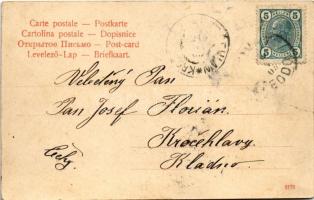 Carte postale — Postkarte
Cartolina postale — Dopisnice
Открытое Письмо — Post-card
Levelező-Lap — Briefkaart.
5 5
5 5
Velectěný Pan
Pan Josef Florián.
Kročehlavy.
Kladno.
Čechy.